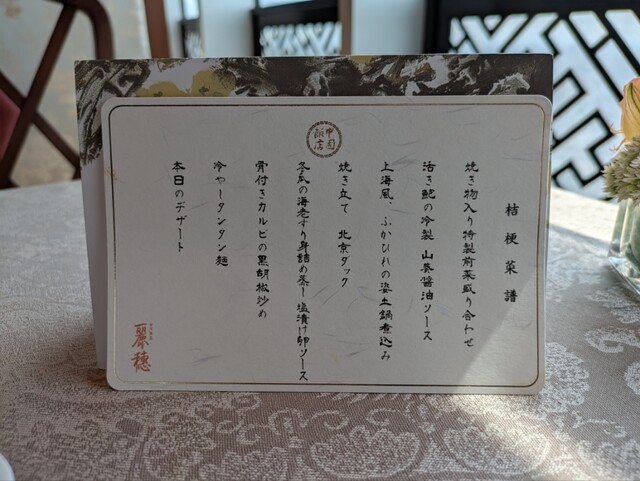 桔梗菜譜
焼き物入り特製前菜盛り合わせ
活き鮑の冷製 山葵醤油ソース
上海風、ふかひれの姿土鍋煮込み
焼き立て 北京ダック
冬瓜の海老すり身詰め蒸し塩漬け卵ソース
骨付きカルビの黒胡椒炒め
冷やータンタン麺
本日のデザート
中国飯店
麗穂